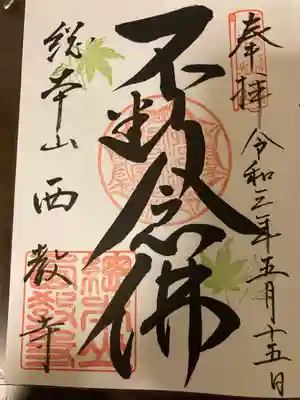 奉拝 令和三年五月十五日
不断念佛
総本山 西教寺